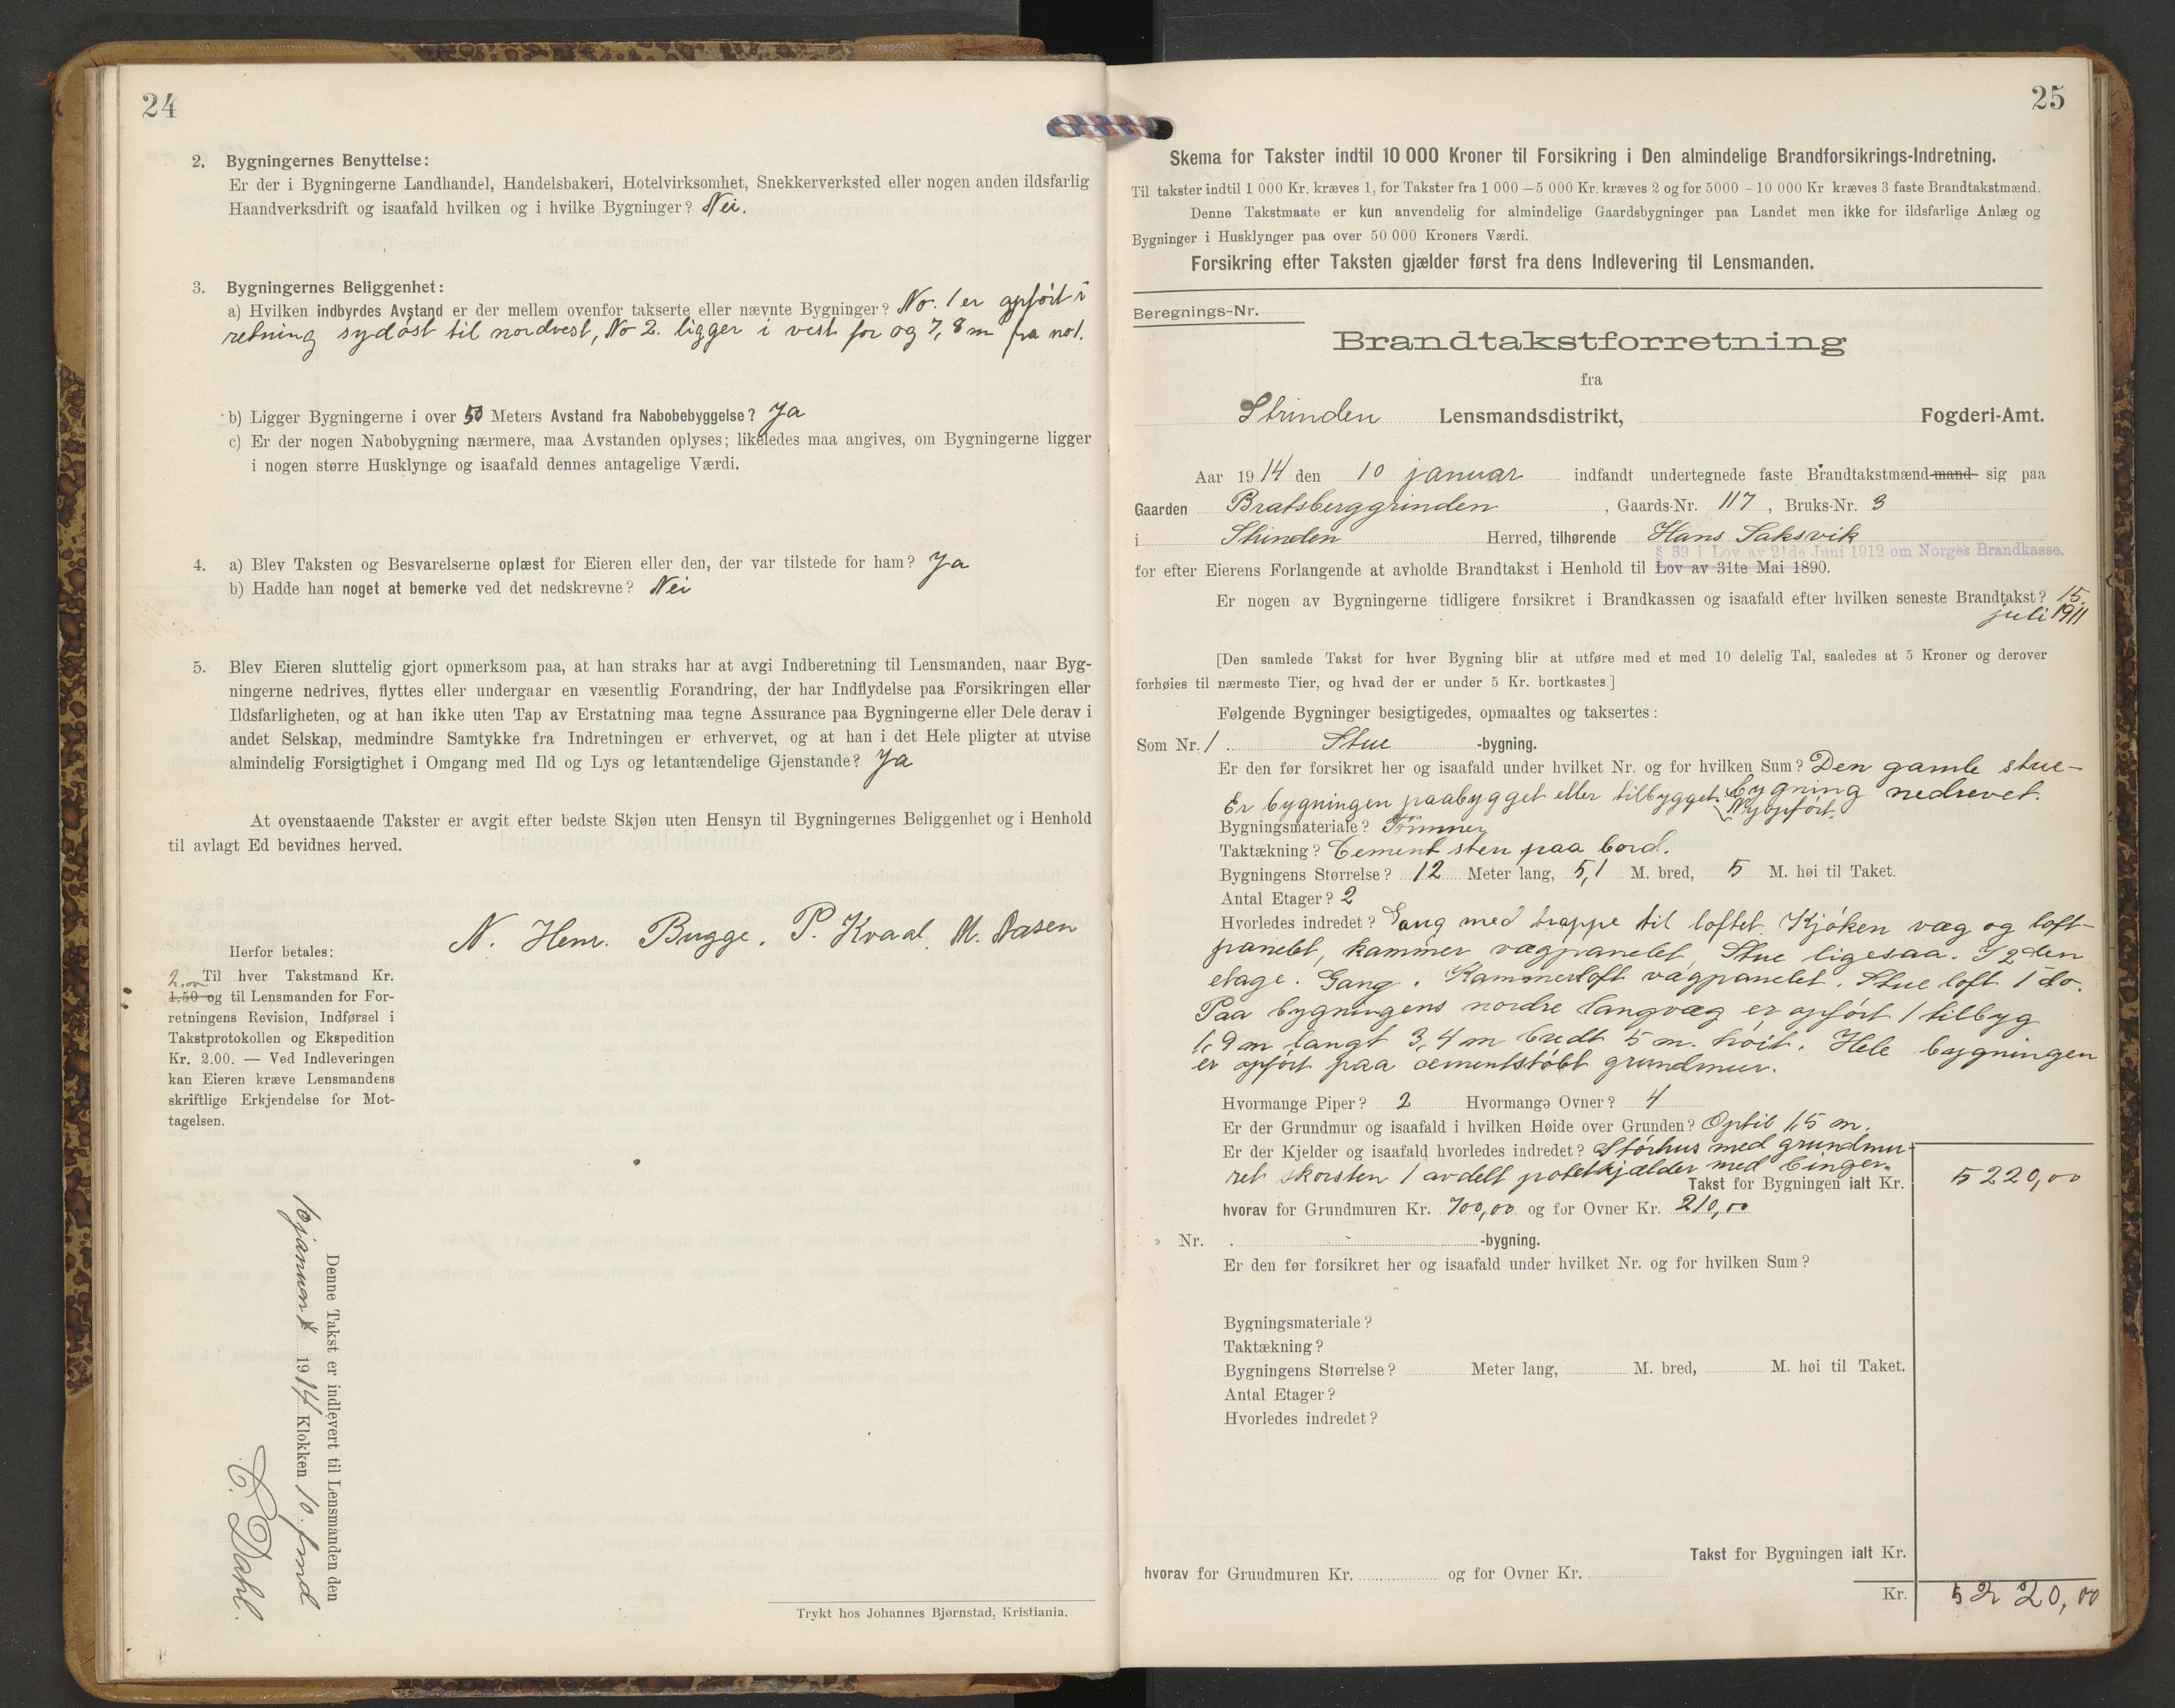 24
2. Bygningernes Benyttelse:
Er der i Bygningerne Landhandel, Handelsbakeri, Hotelvirksomhet, Snekkerverksted eller nogen anden ildsfarlig
Haandverksdrift og isaafald hvilken og i hvilke Bygninger? Nei.
3. Bygningernes Beliggenhet:
a) Hvilken indbyrdes Avstand er der mellem ovenfor takserte eller nævnte Bygninger? No. 1 er opført i
retning sydøst til nordvest, No 2. ligger i vest for og 7,8 m fra no 1.
b) Ligger Bygningerne i over 50 Meters Avstand fra Nabobebyggelse? Ja
c) Er der nogen Nabobygning nærmere, maa Avstanden oplyses; likeledes maa angives, om Bygningerne ligger
i nogen større Husklynge og isaafald dennes antagelige Værdi.
4. a) Blev Taksten og Besvarelserne oplæst for Eieren eller den, der var tilstede for ham? Ja
b) Hadde han noget at bemerke ved det nedskrevne? Nei
5. Blev Eieren sluttelig gjort opmerksom paa, at han straks har at avgi Indberetning til Lensmanden, naar Byg-
ningerne nedrives, flyttes eller undergaar en væsentlig Forandring, der har Indflydelse paa Forsikringen eller
Ildsfarligheten, og at han ikke uten Tap av Erstatning maa tegne Assurance paa Bygningerne eller Dele derav i
andet Selskap, medmindre Samtykke fra Indretningen er erhvervet, og at han i det Hele pligter at utvise
almindelig Forsigtighet i Omgang med Ild og Lys og letantændelige Gjenstande? Ja
At ovenstaaende Takster er avgit efter bedste Skjøn uten Hensyn til Bygningernes Beliggenhet og i Henhold
til avlagt Ed bevidnes herved.
N. Henr. Bugge. P. Kvaal. M. Aasen
Herfor betales:
2.00 Til hver Takstmand Kr.
1.50 og til Lensmanden for For-
retningens Revision, Indførsel i
Takstprotokollen og Ekspedition
Kr. 2.00. — Ved Indleveringen
kan Eieren kræve Lensmandens
skriftlige Erkjendelse for Mot-
tagelsen.
Denne Takst er indlevert til Lensmanden den
10 januar 1914 Klokken 10. fmd
C. Dahl.
Trykt hos Johannes Bjørnstad, Kristiania.
25
Skema for Takster indtil 10 000 Kroner til Forsikring i Den almindelige Brandforsikrings-Indretning.
Til takster indtil 1 000 Kr. kræves 1, for Takster fra 1 000—5 000 Kr. kræves 2 og for 5000 - 10 000 Kr kræves 3 faste Brandtakstmænd.
Denne Takstmaate er kun anvendelig for almindelige Gaardsbygninger paa Landet men ikke for ildsfarlige Anlæg og
Bygninger i Husklynger paa over 50 000 Kroners Værdi.
Forsikring efter Taksten gjælder først fra dens Indlevering til Lensmanden.
Beregnings-Nr.
Brandtakstforretning
fra
Strinden Lensmandsdistrikt, Fogderi-Amt.
Aar 1914 den 10 januar indfandt undertegnede faste Brandtakstmænd-mand sig paa
Gaarden Bratsberggrinden, Gaards-Nr. 117, Bruks-Nr. 3
i Strinden Herred, tilhørende Hans Saksvik
§ 39 i Lov av 21de Juni 1912 om Norges Brandkasse.
for efter Eierens Forlangende at avholde Brandtakst i Henhold til Lov av 31te Mai 1890.
Er nogen av Bygningerne tidligere forsikret i Brandkassen og isaafald efter hvilken seneste Brandtakst? 15.
juli 1911
[Den samlede Takst for hver Bygning blir at utføre med et med 10 delelig Tal, saaledes at 5 Kroner og derover
forhøies til nærmeste Tier, og hvad der er under 5 Kr. bortkastes.]
Følgende Bygninger besigtigedes, opmaaltes og taksertes:
Som Nr. 1 Stue -bygning.
Er den før forsikret her og isaafald under hvilket Nr. og for hvilken Sum? Den gamle stue-
bygning nedrevet.
Er bygningen paabygget eller tilbygget. Nyopført.
Bygningsmateriale? Tømmer
Taktækning? Cement sten paa bord.
Bygningens Størrelse? 12 Meter lang, 5,1 M. bred, 5 M. høi til Taket.
Antal Etager? 2
Hvorledes indredet? Gang med trappe til loftet. Kjøken væg og loft-
panelet, kammer vægpanelet, Stue ligesaa. I 2den
etage. Gang. Kammerloft vægpanelet. Stue loft 1 do.
Paa bygningens nordre langvæg er opført 1 tilbyg
1,9 m langt 3,4 m bredt 5 m. høit. Hele bygningen
er opført paa cementstøbt grundmur.
Hvormange Piper? 2 Hvormange Ovner? 4
Er der Grundmur og isaafald i hvilken Høide over Grunden? Optil 1,5 m.
Er der Kjelder og isaafald hvorledes indredet? Størhus med grundmu-
ret skorsten 1 avdelt potetkjælder med binger.
Takst for Bygningen ialt Kr. 5220,00
hvorav for Grundmuren Kr. 700,00 og for Ovner Kr. 210,00
Nr. -bygning.
Er den før forsikret her og isaafald under hvilket Nr. og for hvilken Sum?
Bygningsmateriale?
Taktækning?
Bygningens Størrelse? Meter lang, M. bred, M. høi til Taket.
Antal Etager?
Hvorledes indredet?
Takst for Bygningen ialt Kr.
hvorav for Grundmuren Kr. og for Ovner Kr.
Kr. 5220,00